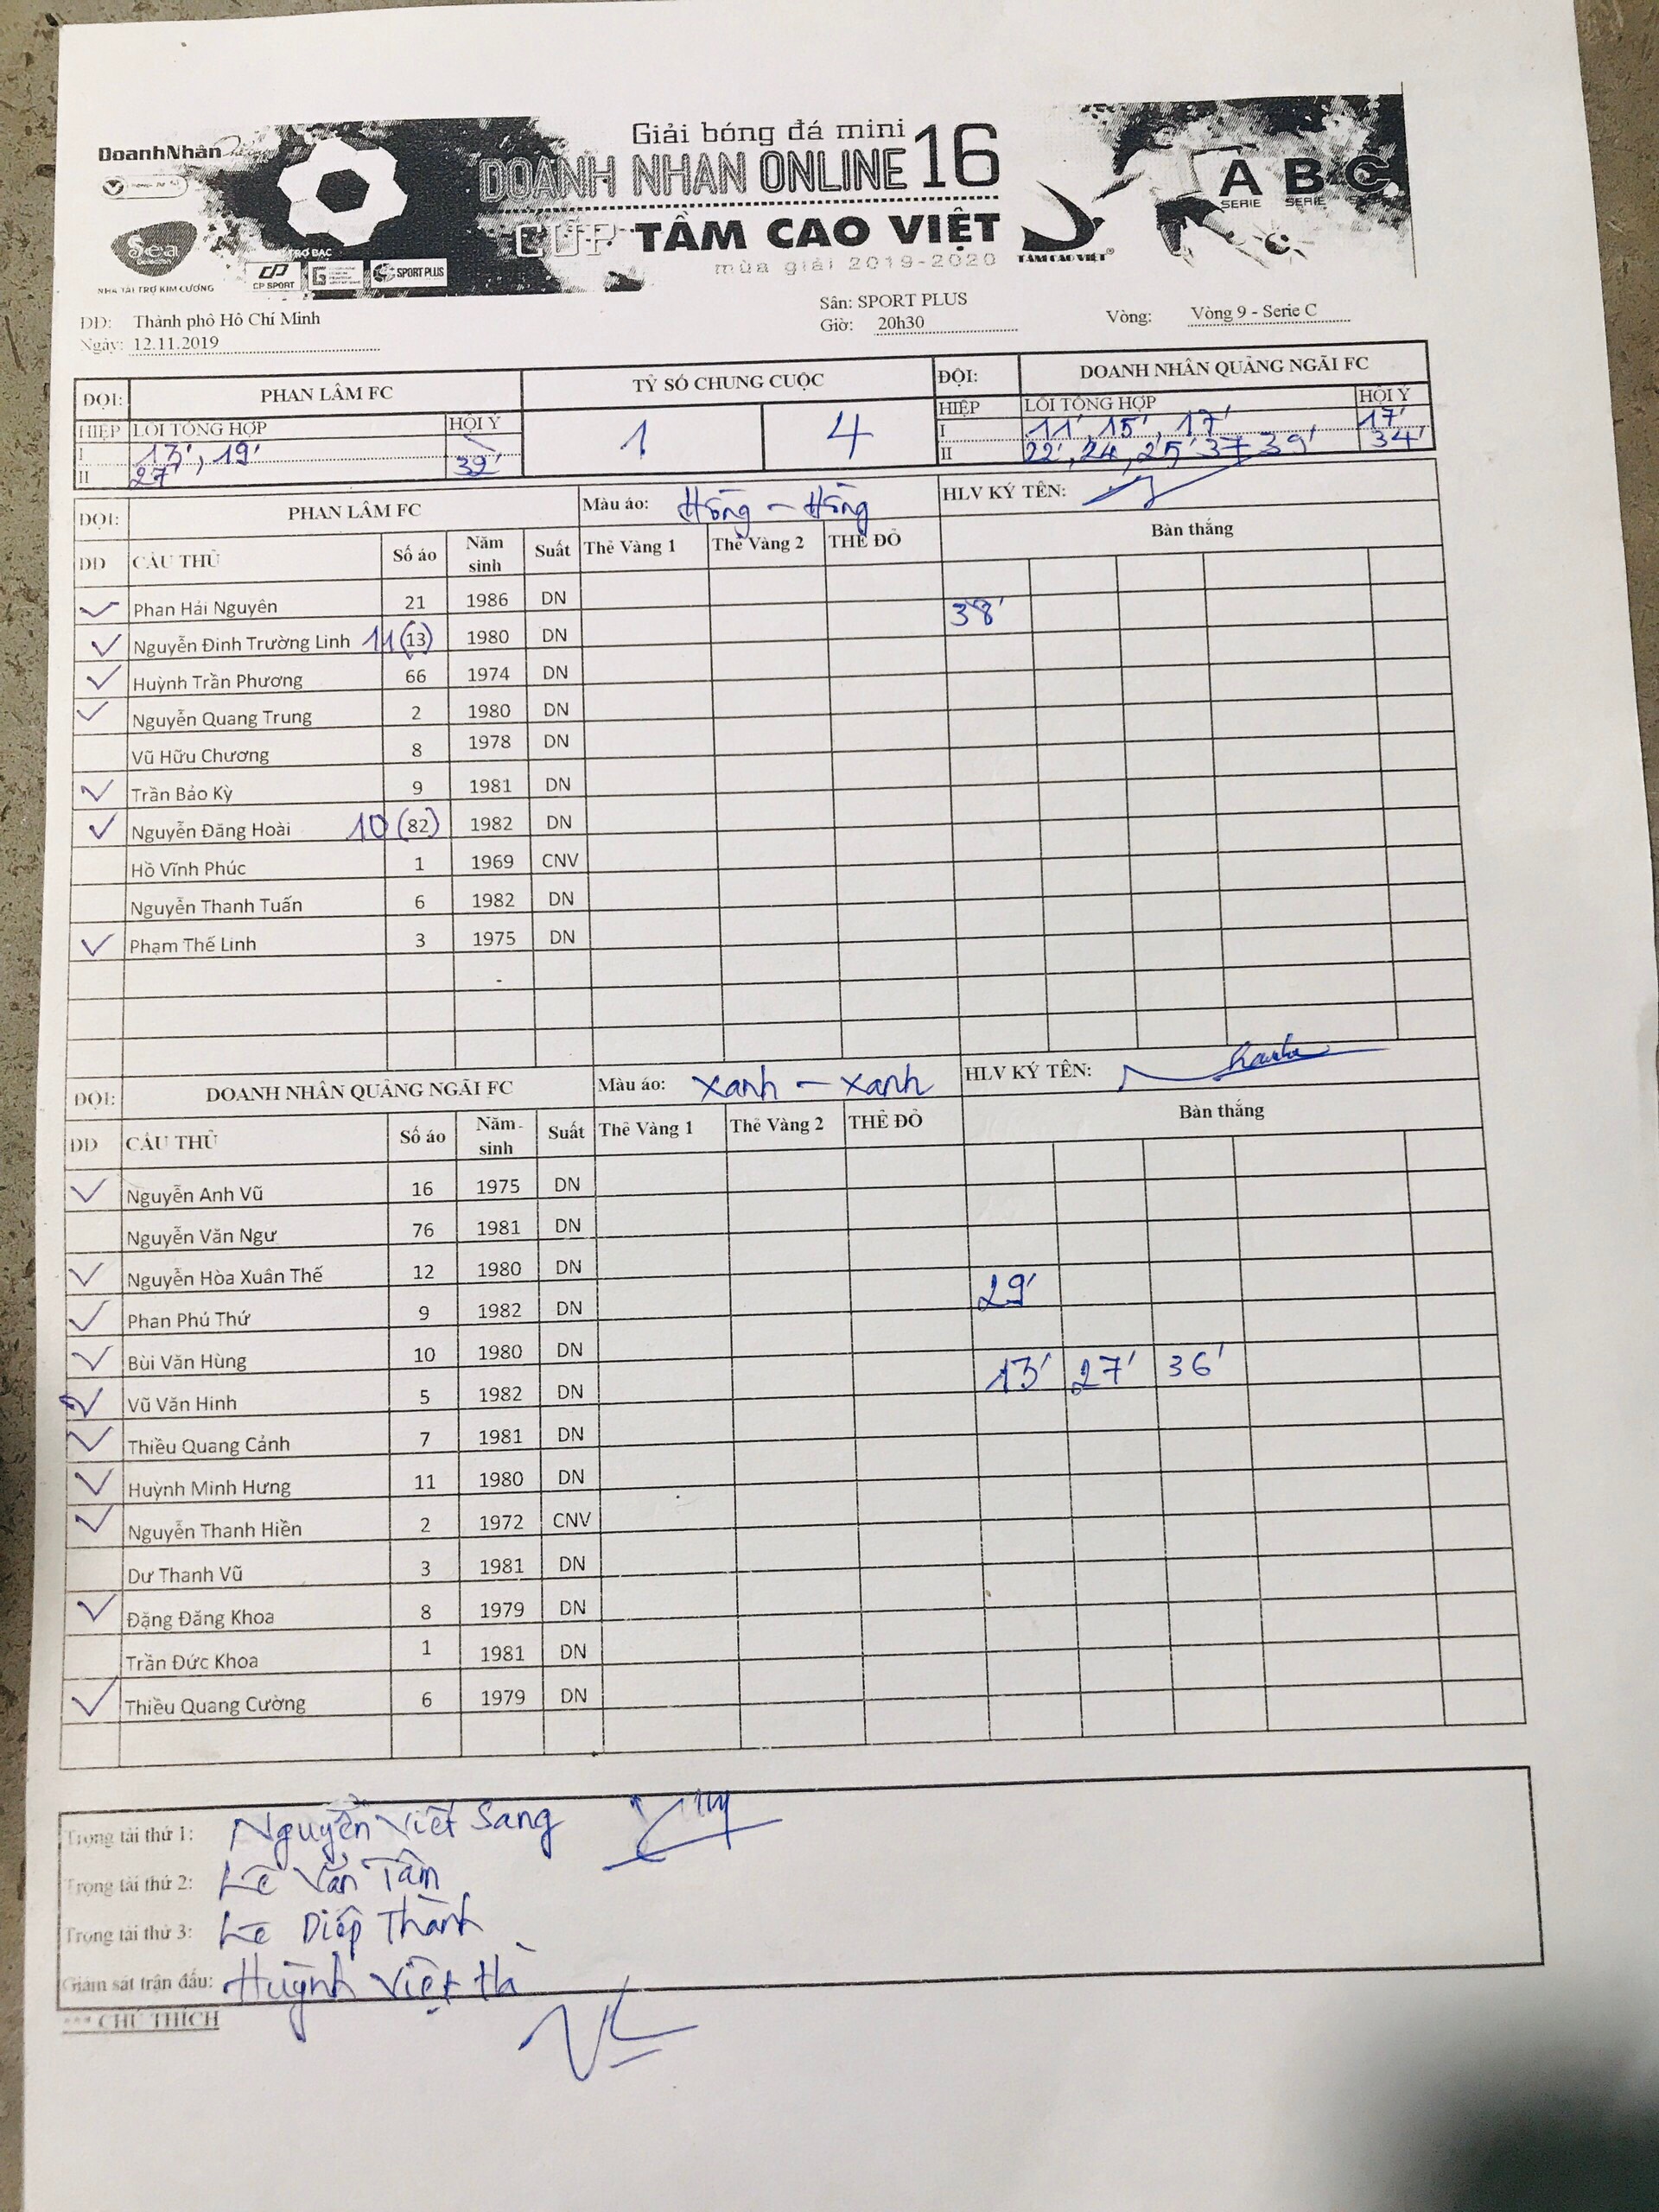 DoanhNhân
Giải bóng đá mini
DOANH NHAN ONLINE 16
CUP TẦM CAO VIỆT
mùa giải 2019-2020
TẦM CAO VIỆT®
A B C
SERIE SERIE
Sea
NHÀ TÀI TRỢ KIM CƯƠNG
CP
CP SPORT
SPORT PLUS
ĐĐ: Thành phố Hồ Chí Minh
Ngày: 12.11.2019
Sân: SPORT PLUS
Giờ: 20h30
Vòng: Vòng 9 - Serie C
ĐỘI: PHAN LÂM FC TỶ SỐ CHUNG CUỘC ĐỘI: DOANH NHÂN QUẢNG NGÃI FC
HIỆP LỖI TỔNG HỢP HỘI Ý 1 4 HIỆP LỖI TỔNG HỢP HỘI Ý
I 13', 19' I 11', 15', 17' 17'
II 27' 32' II 22', 24, 25' 37 39' 34'
ĐỘI: PHAN LÂM FC Màu áo: Hồng - Hồng HLV KÝ TÊN:
ĐD CẦU THỦ Số áo Năm sinh Suất Thẻ Vàng 1 Thẻ Vàng 2 THẺ ĐỎ Bàn thắng
✓ Phan Hải Nguyên 21 1986 DN 38'
✓ Nguyễn Đình Trường Linh 11 (13) 1980 DN
✓ Huỳnh Trần Phương 66 1974 DN
✓ Nguyễn Quang Trung 2 1980 DN
Vũ Hữu Chương 8 1978 DN
✓ Trần Bảo Kỳ 9 1981 DN
✓ Nguyễn Đăng Hoài 10 (82) 1982 DN
Hồ Vĩnh Phúc 1 1969 CNV
Nguyễn Thanh Tuấn 6 1982 DN
✓ Phạm Thế Linh 3 1975 DN
ĐỘI: DOANH NHÂN QUẢNG NGÃI FC Màu áo: Xanh - Xanh HLV KÝ TÊN:
ĐD CẦU THỦ Số áo Năm sinh Suất Thẻ Vàng 1 Thẻ Vàng 2 THẺ ĐỎ Bàn thắng
✓ Nguyễn Anh Vũ 16 1975 DN
Nguyễn Văn Ngư 76 1981 DN
✓ Nguyễn Hòa Xuân Thế 12 1980 DN
✓ Phan Phú Thứ 9 1982 DN 29'
✓ Bùi Văn Hùng 10 1980 DN
✓ Vũ Văn Hinh 5 1982 DN 13' 27' 36'
✓ Thiều Quang Cảnh 7 1981 DN
✓ Huỳnh Minh Hưng 11 1980 DN
✓ Nguyễn Thanh Hiền 2 1972 CNV
Dư Thanh Vũ 3 1981 DN
✓ Đặng Đăng Khoa 8 1979 DN
Trần Đức Khoa 1 1981 DN
✓ Thiều Quang Cường 6 1979 DN
Trọng tài thứ 1: Nguyễn Viết Sang
Trọng tài thứ 2: Lê Văn Tâm
Trọng tài thứ 3: Lê Diệp Thành
Giám sát trận đấu: Huỳnh Việt Hà
*** CHÚ THÍCH